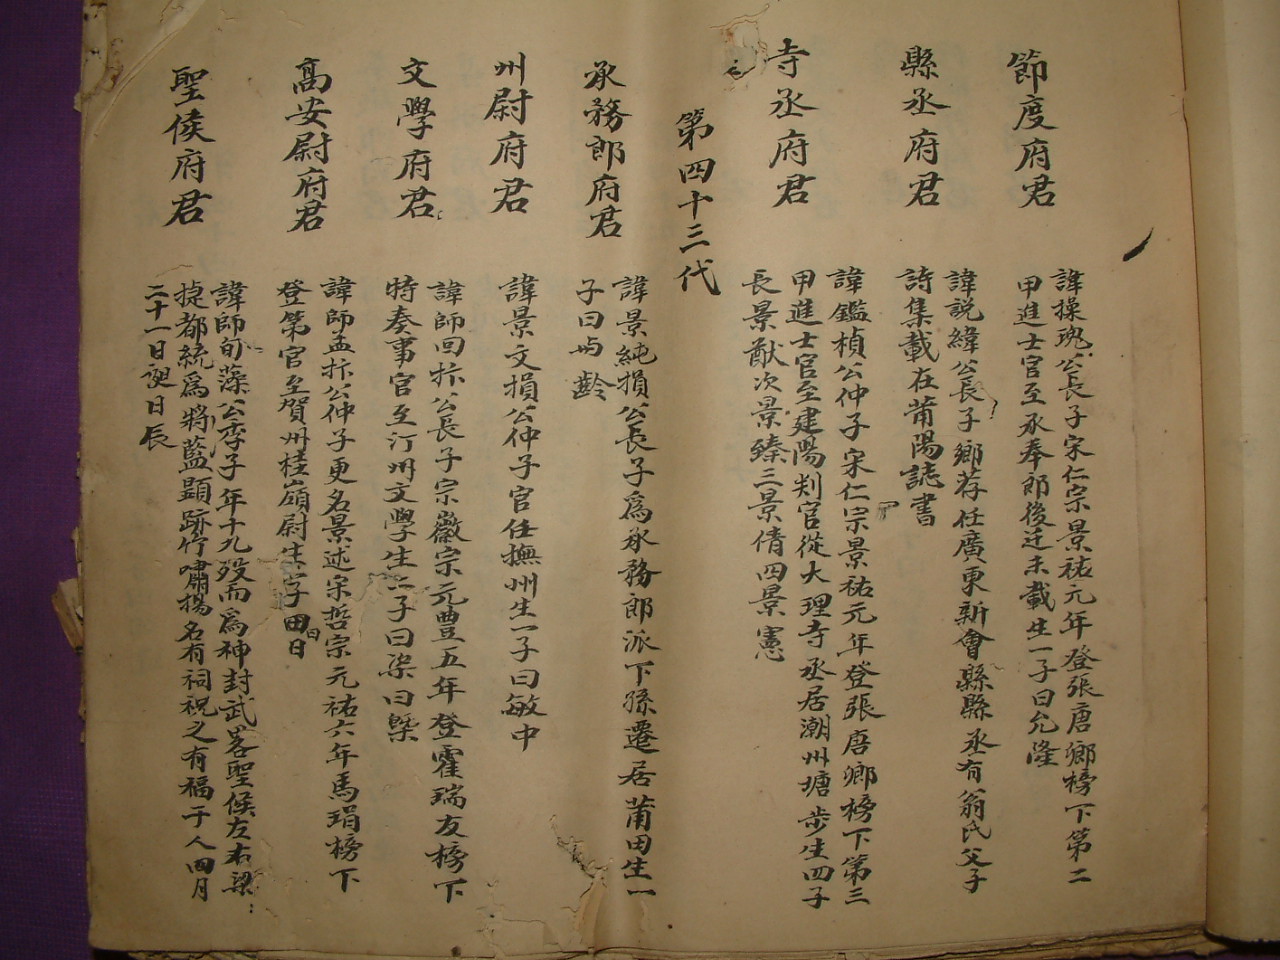 節度府君
諱操瑰公長子宋仁宗景祐元年登張唐鄉榜下第二
甲進士官至承奉郎後迁未載生一子曰允隆
縣丞府君
諱説緯公長子鄉荐任廣東新會縣縣丞有翁氏父子
詩集載在莆陽誌書
寺丞府君
諱鑑楨公仲子宋仁宗景祐元年登張唐鄉榜下第三
甲進士官至建陽判官從大理寺丞居潮州塘步生四子
長景猷次景臻三景倩四景憲
第四十三代
承務郎府君
諱景純損公長子爲承務郎派下孫遷居莆田生一
子曰与齡
州尉府君
諱景文損公仲子官任撫州生一子曰敏中
文學府君
諱師回拆公長子宗徽宗元豊五年登霍瑞友榜下
特奏事官至汀州文學生二子曰栄曰槩
高安尉府君
諱師孟拆公仲子更名景述宋哲宗元祐六年馬琄榜下
登第官至賀州桂嶺尉生字田曰日
聖侯府君
諱師旬藻公季子年十九殁而爲神封武畧聖侯左右梁
捷都統爲將藍顕跡竹嘯揚名有祠祝之有福于人四月
二十一日誕日辰